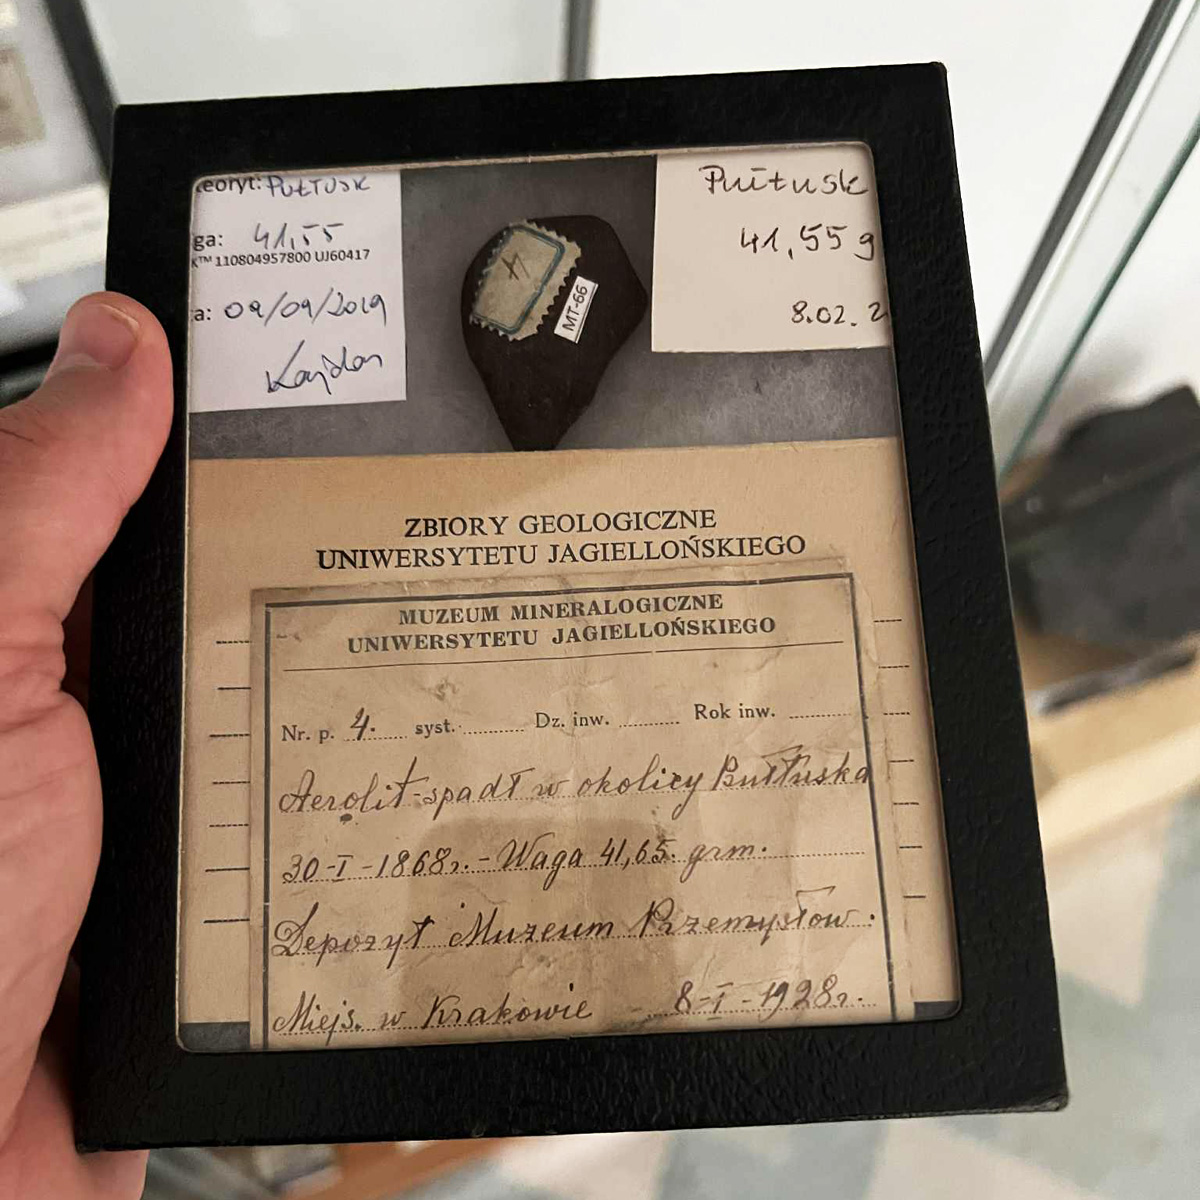 eoryt: PUŁTUSK
ga: 41,55
K™ 110804957800 UJ60417
a: 09/09/2019
4
MT-66
Pułtusk
41,55 g
8.02. 2
ZBIORY GEOLOGICZNE
UNIWERSYTETU JAGIELLOŃSKIEGO
MUZEUM MINERALOGICZNE
UNIWERSYTETU JAGIELLOŃSKIEGO
Nr. p. 4. syst. Dz. inw. Rok inw.
Aerolit-spadł w okolicy Pułtuska
30-I-1868r. - Waga 41,65. grm.
Depozyt Muzeum Przemysłow.
Miejs. w Krakowie 8-I-1928r.